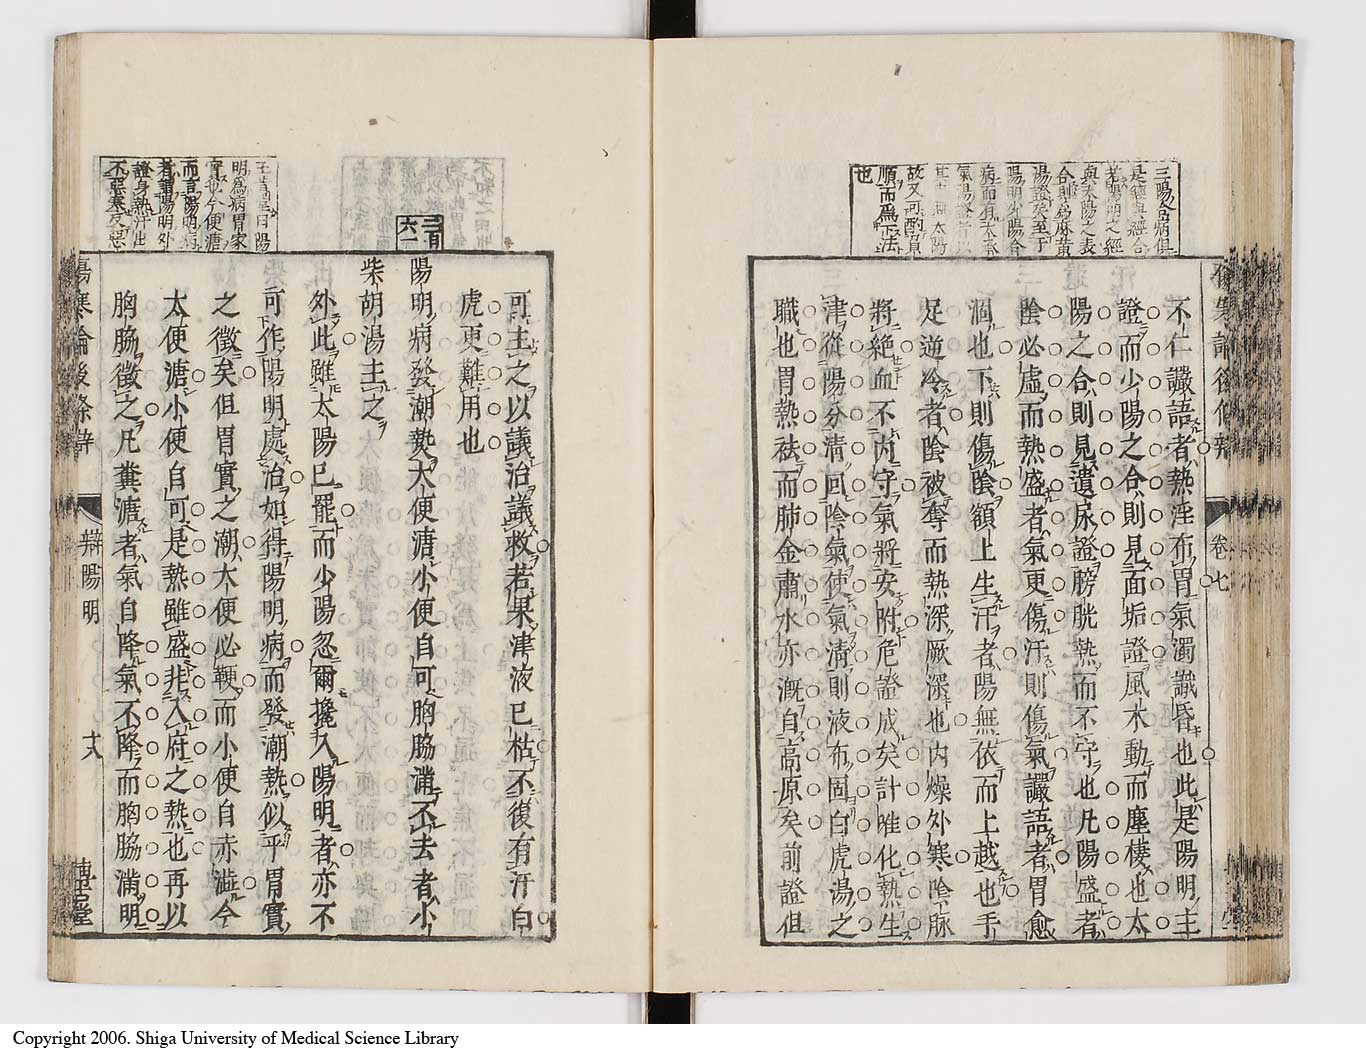 三陽合病俱
是經與經合
若陽明之經
與太陽之表
合則為麻黃
湯證矣至于
陽明少陽合
病而有太柔
氣湯證者以
故又可酌
順而為下法
也
不仁讝語者熱淫布胃氣濁識昏也此是陽明主
證而少陽之合則見面垢證風木動而塵㙲也太
陽之合則見遺尿證膀胱熱而不守也凡陽盛者
陰必虛而熱盛者氣更傷汗則傷氣讝語者胃愈
涸也下則傷陰額上生汗者陽無依而上越也手
足逆冷者陰被奪而熱深厥深也内燥外寒陰脈
將絕血不内守氣將安附危證成矣計唯化熱生
津從陽分清回陰氣使氣清則液布固白虎湯之
職也胃熱袪而肺金肅水亦溉自高原矣前證但
卷七
可主之以議治議救若果津液已枯不復有汗白
虎更難用也
二百六一
陽明病發潮熱大便溏小便自可胸脇滿不去者小
柴胡湯主之
外此雖太陽已罷而少陽忽爾攙入陽明者亦不
可作陽明處治如得陽明病而發潮熱似乎胃實
之徵矣但胃實之潮大便必鞕而小便自赤澁今
大便溏小便自可是熱雖盛非入府之熱也再以
胸脇徵之凡糞溏者氣自降氣不降而胸脇滿明
明為病胃家
實也今便溏
而言陽明病
者謂陽明外
證身熱汗出
不惡寒反惡
傷寒論後條辨
辯陽明
十八
博古堂
Copyright 2006. Shiga University of Medical Science Library